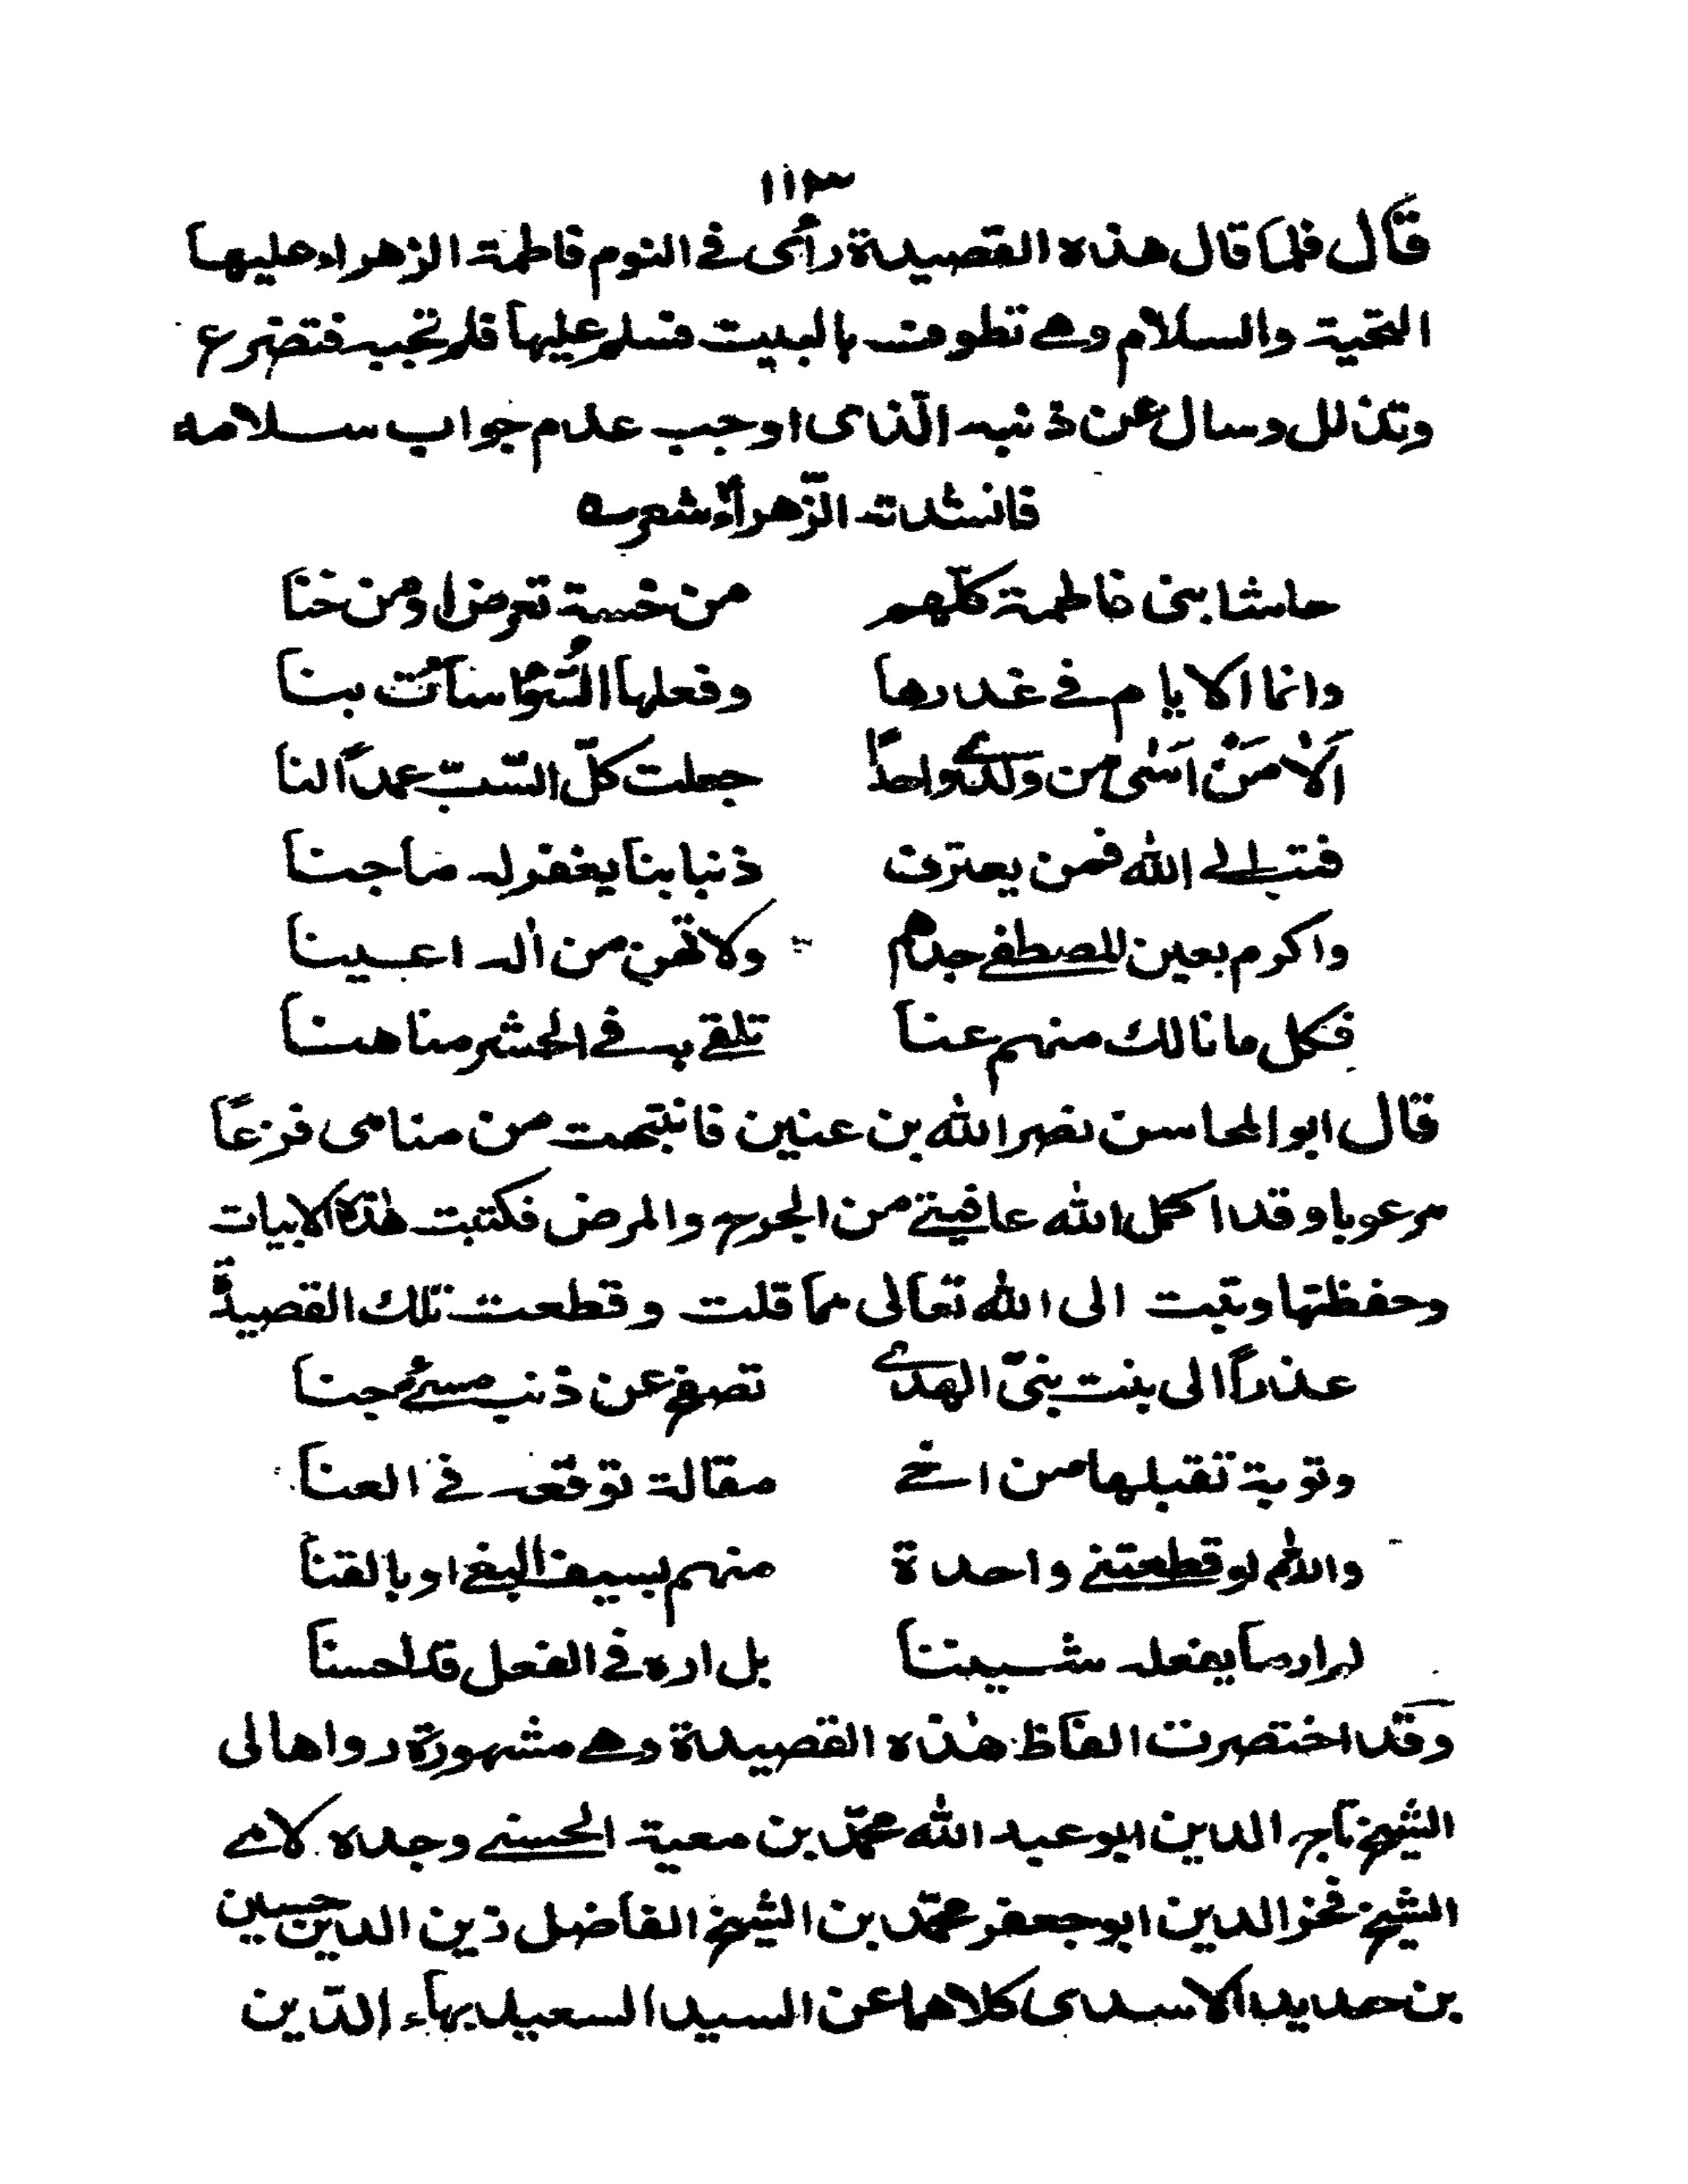 ١١٣
قال فلما قال هذه القصيدة رأى في النوم فاطمة الزهراء عليها
التحية والسلام وهي تطوف بالبيت فسلم عليها فلم تجبه فتضرع
وتذلل وسال عن ذنبه الّذى اوجب عدم جواب سلامه
فانشدته الزّهراءُ شعر
حاشا بنى فاطمة كلّهم من خسة تعرض او من خنا
وانما الايام في غدرها وفعلها السُّوءَ اساءَت بنا
اَلاْ مَنْ اَسٰى من ولدي واحدًا جعلت كلّ السّبّ عمدًا لنا
فتب الى الله فمن يعترف ذنبا بنا يغفر له ما جنا
واكرم بعين المصطفى جدهم ولا تهن من اٰله اعينا
فكل ما نالك منهم عنا تلقى به في الحشر منا هنا
قال ابو المحاسن نصر الله بن عنين فانتبهت من منامى فزعًا
مرعوبا وقد اكمل الله عافيتي من الجرح والمرض فكتبت هٰذه الابيات
وحفظتها وتبت الى الله تعالى مما قلت وقطعت تلك القصيدة
عذراً الى بنت نبىّ الهدى تصفح عن ذنب مسئ جنا
وتوبة تقبلها من اخي مقالة توقعه في العنا
والله لو قطعتني واحدة منهم بسيف البغي او بالقنا
لم ار ما يفعله شيبتنا بل اره في الفعل قد احسنا
وقد اختصرت الفاظ هٰذه القصيدة وهي مشهورة رواها لى
الشيخ تاج الدين ابو عبد الله محمّد بن معية الحسني وجده لامي
الشيخ فخر الدين ابو جعفر محمّد بن الشيخ الفاضل زين الدين حسين
بن حديد الاسدى كلاهما عن السيد السعيد بهاء الدّين